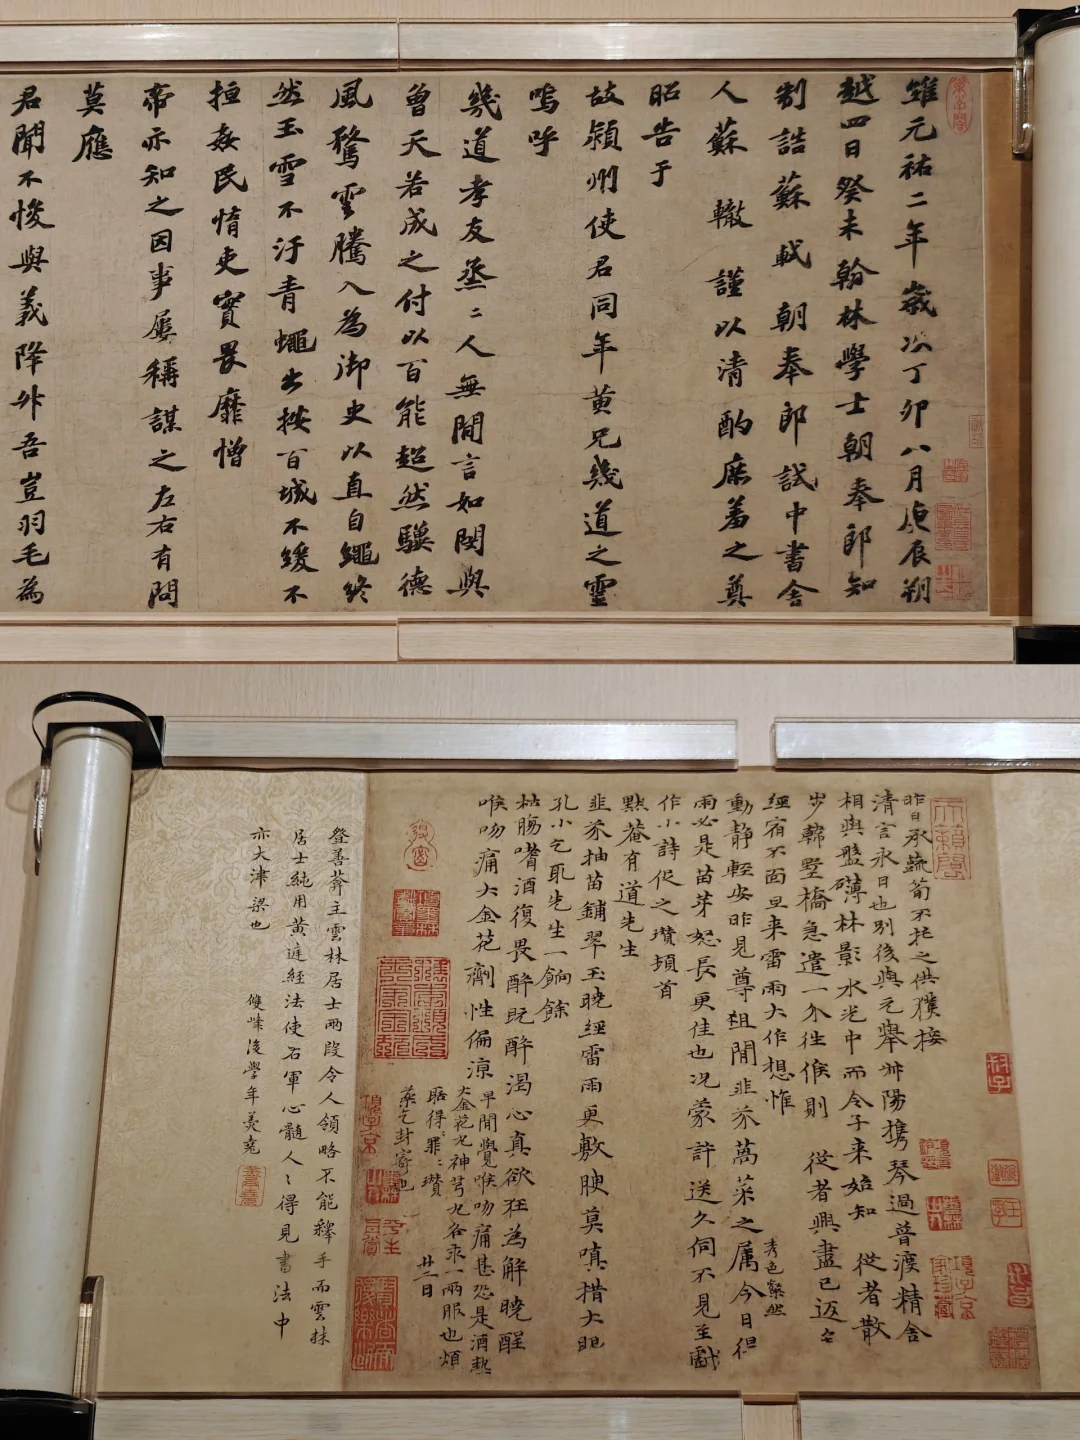 維元祐二年歲次丁卯八月庚辰朔
越四日癸未翰林學士朝奉郎知
制誥蘇軾朝奉郎試中書舍
人蘇轍謹以清酌庶羞之奠
昭告于
故潁州使君同年黄兄幾道之靈
嗚呼
幾道孝友烝〻人無間言如閔與
曾天若成之付以百能超然驥德
風騖雲騰入為御史以直自繩終
然玉雪不汙青蠅出按百城不緩不
搄姦民惰吏實畏靡憎
帝亦知之因事屢稱謀之左右有問
莫應
君聞不悛與義降升吾豈羽毛為
昨日承蔬筍不托之供獲接
清言永日也別後與元舉艸陽携琴過普渡精舍
相與盤礴林影水光中而令子来始知 從者散
步韓墅橋急遣一介往候則 從者興盡已返矣
經宿不面旦来雷雨大作想惟
動静輕安昨見尊俎間韭芥萬菜之属今日但
雨必是苗芽怒長更佳也况蒙許送久伺不見至戲
秀色粲然
作小詩促之 瓚頓首
點菴有道先生
韭芥抽苗鋪翠玉曉經雷雨更敷腴莫嗔措大眼
孔小乞取先生一餉餘
枯腸嗜酒復畏醉既醉渴心真欲狂為解曉醒
喉吻痛大金花劑性偏涼
早間覺喉吻痛甚恐是酒熱
大金花丸神芎丸各求一兩服也煩
聒得罪〻瓚
藥乞封寄也
廿二日
登善葊主雲林居士兩段令人領略不能釋手而雲林
居士純用黄庭經法使右軍心髓人〻得見書法中
亦大津梁也
雙峰後學年羹堯